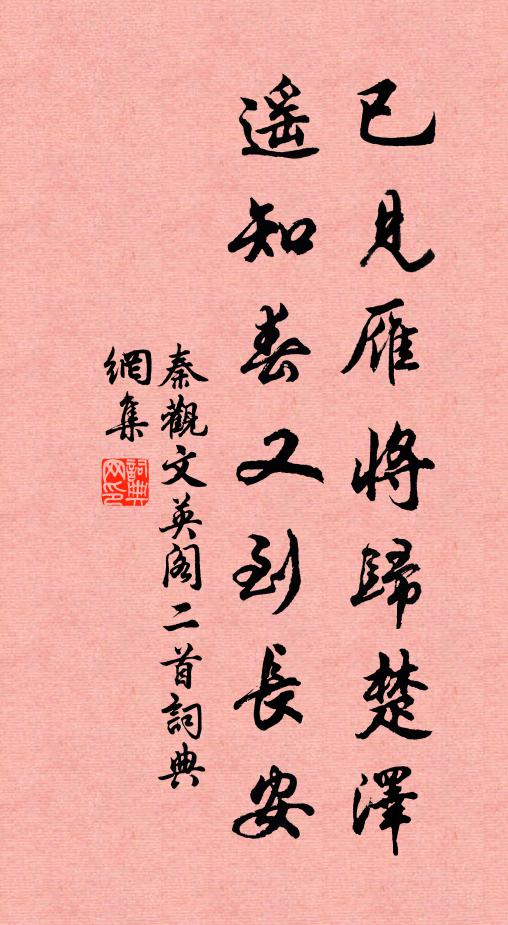 已見雁將歸楚澤
遥知春又到長安
秦觀文英阁二首詞典
網集
詞典网印